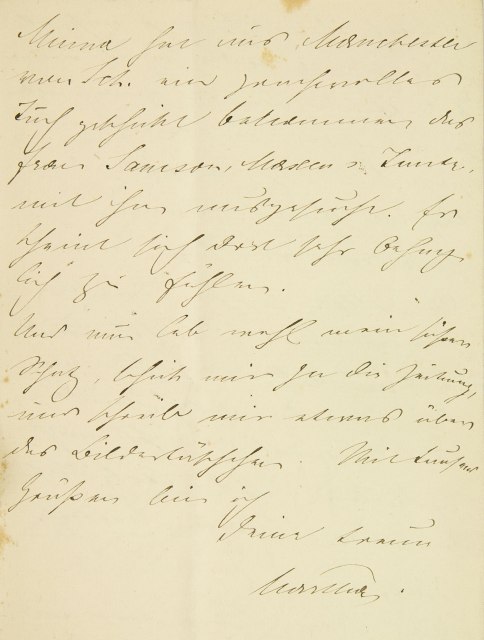 Minna hat aus Manchester
von Sch. ein prachtvolles
Tuch geschickt bekommen, das
Frau Samson, Mary u.
mit ihm ausgesucht. Er
scheint sich dort sehr behag
lich zu fühlen.
Und nun leb wohl mein süßer
Schatz, schick mir ja die Zeitung,
und schreib mir etwas über
das Bildertäschchen. Mit tausend
Grüßen bin ich
Deine treue
Martha.